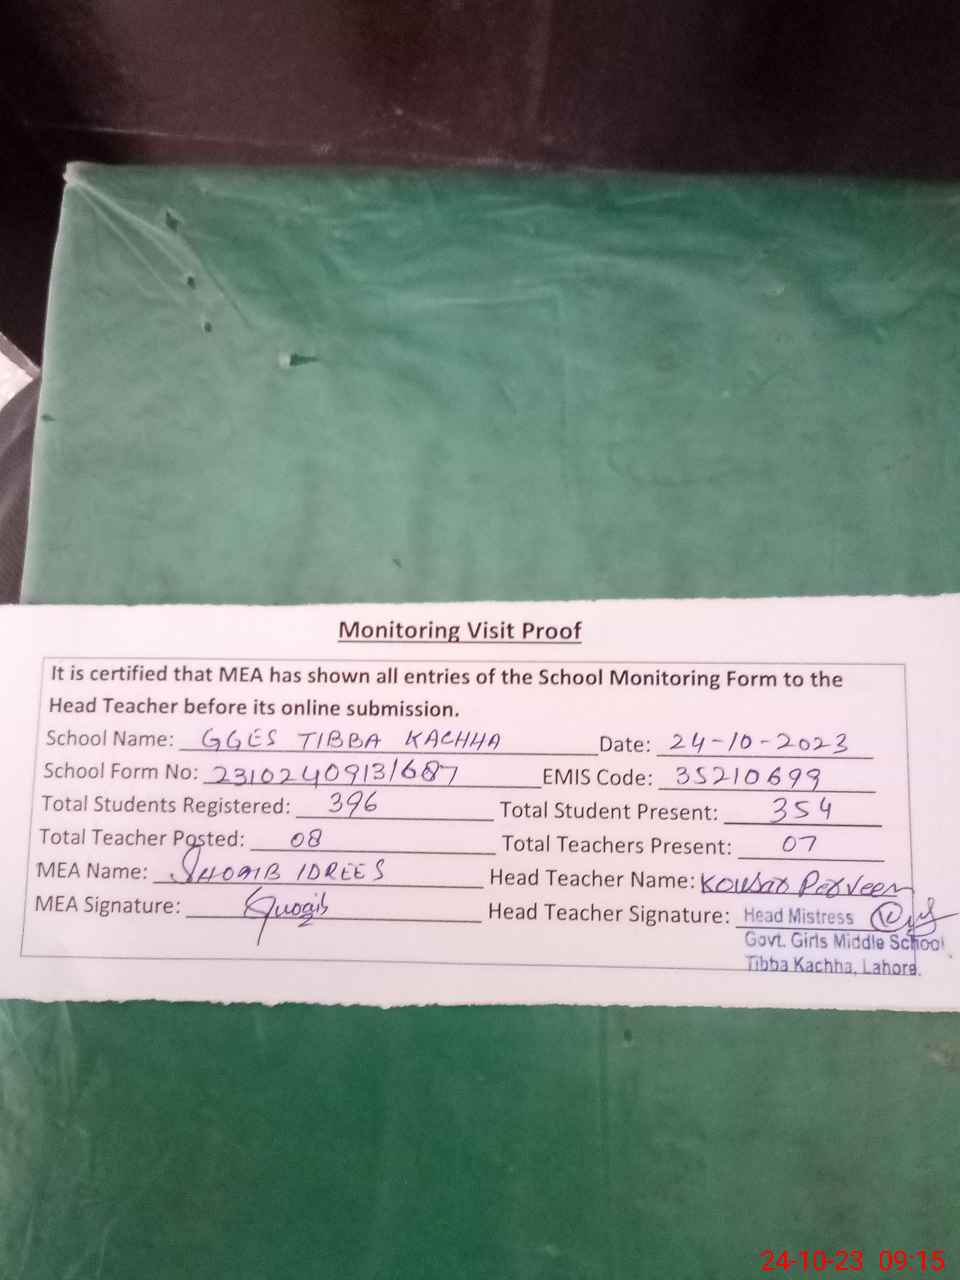 Monitoring Visit Proof
It is certified that MEA has shown all entries of the School Monitoring Form to the
Head Teacher before its online submission.
School Name: GGES TIBBA KACHHA Date: 24-10-2023
School Form No: 23102409131687 EMIS Code: 35210699
Total Students Registered: 396 Total Student Present: 354
Total Teacher Posted: 08 Total Teachers Present: 07
MEA Name: SHOAIB IDREES Head Teacher Name: Kousar Parveen
MEA Signature: Shoaib Head Teacher Signature: Head Mistress
Govt. Girls Middle School
Tibba Kachha, Lahore.
24-10-23 09:15